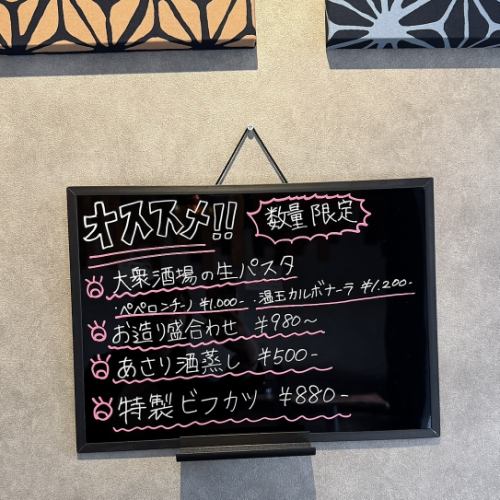 オススメ!! 数量限定
大衆酒場の生パスタ
・ペペロンチーノ ¥1.000- ・温玉カルボナーラ ¥1.200-
お造り盛合わせ ¥980〜
あさり酒蒸し ¥500-
特製ビフカツ ¥880-